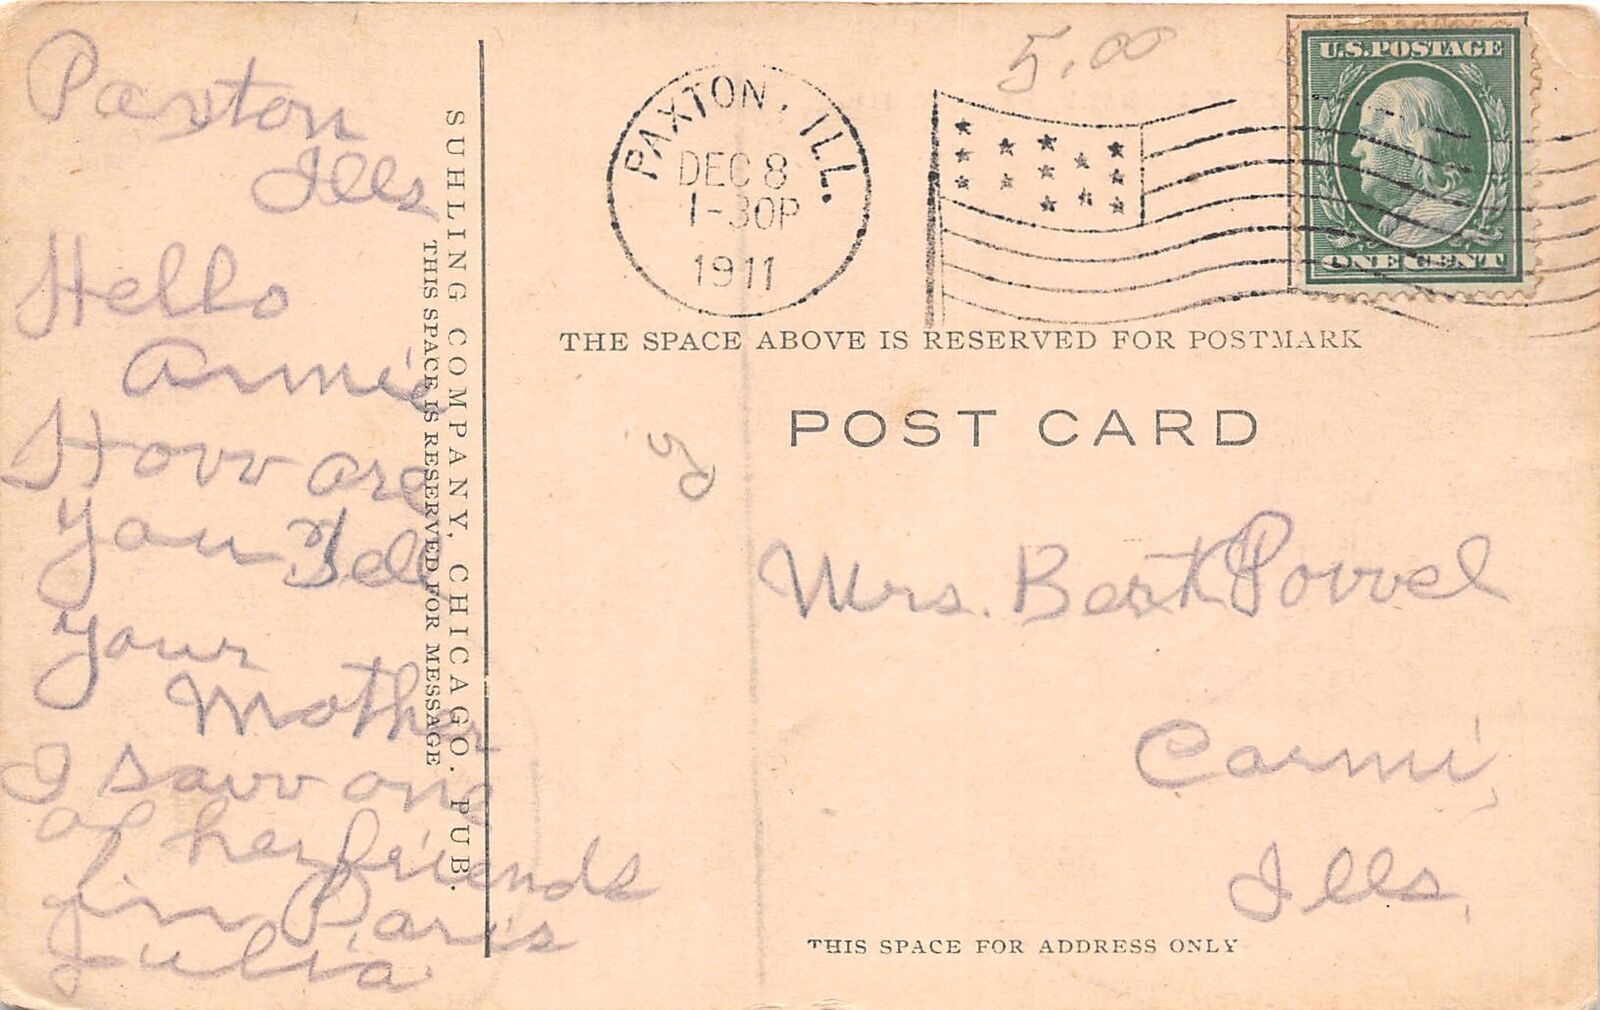 Paxton
Ills
Hello
Annie
How are
you Tell
your
Mother
I saw one
of her friends
in Paris
Julia
SUHLING COMPANY, CHICAGO. PUB.
THIS SPACE IS RESERVED FOR MESSAGE
PAXTON, ILL.
DEC 8
1-30P
1911
5.00
U.S. POSTAGE
ONE CENT
THE SPACE ABOVE IS RESERVED FOR POSTMARK
POST CARD
Mrs. Bert Powel
Carmi,
Ills.
THIS SPACE FOR ADDRESS ONLY